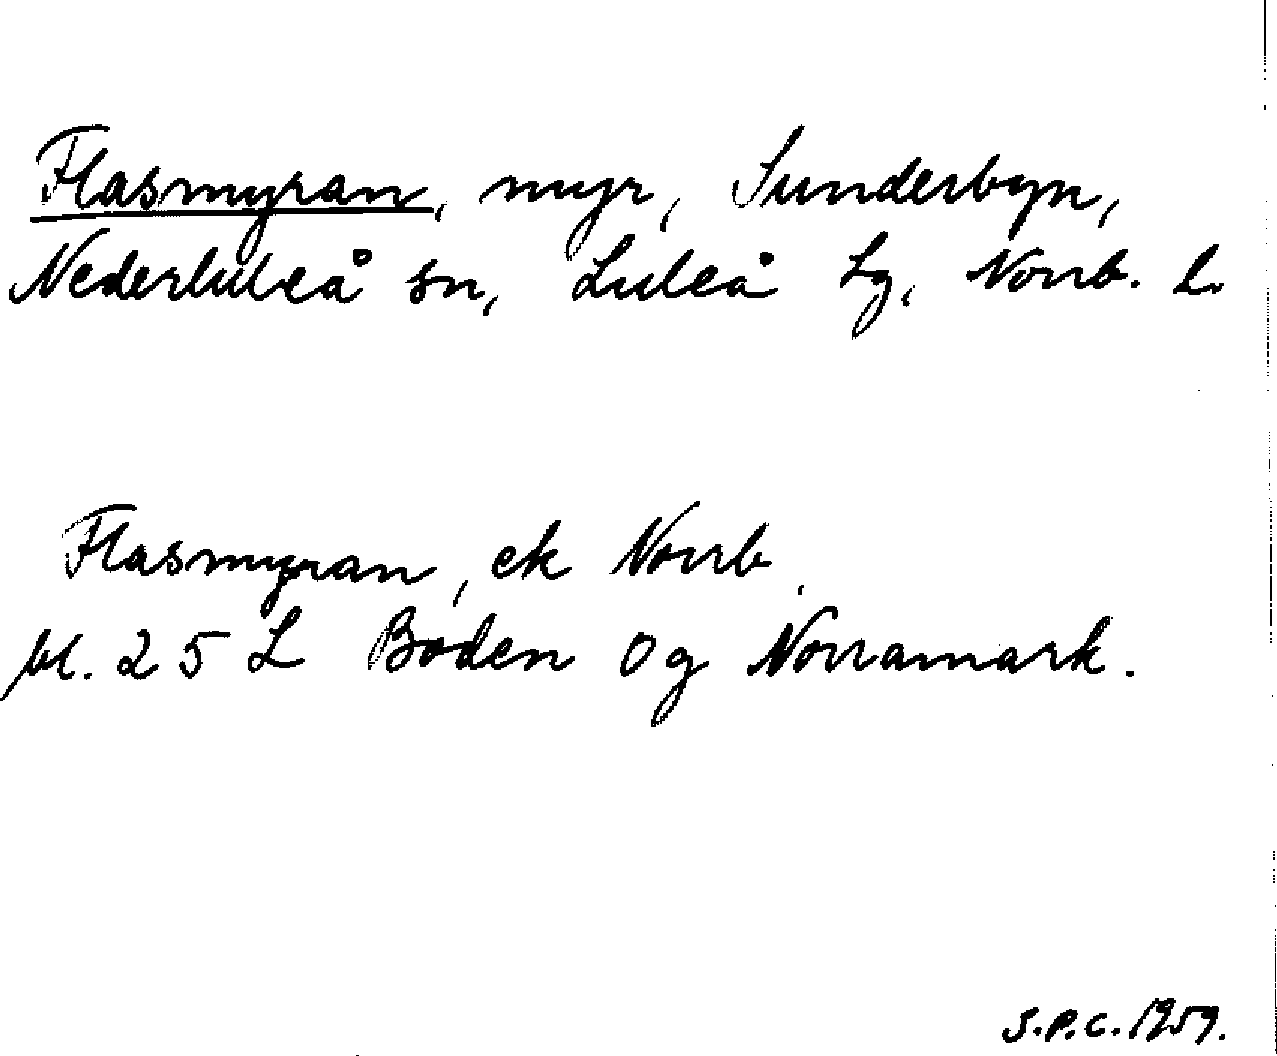 Flasmyran, myr, Sunderbyn,
Nederluleå sn, Luleå tg, Norrb. l.
Flasmyran, ek Norrb.
bl. 25 L Boden og Norramark.
S.P.C. 1959.